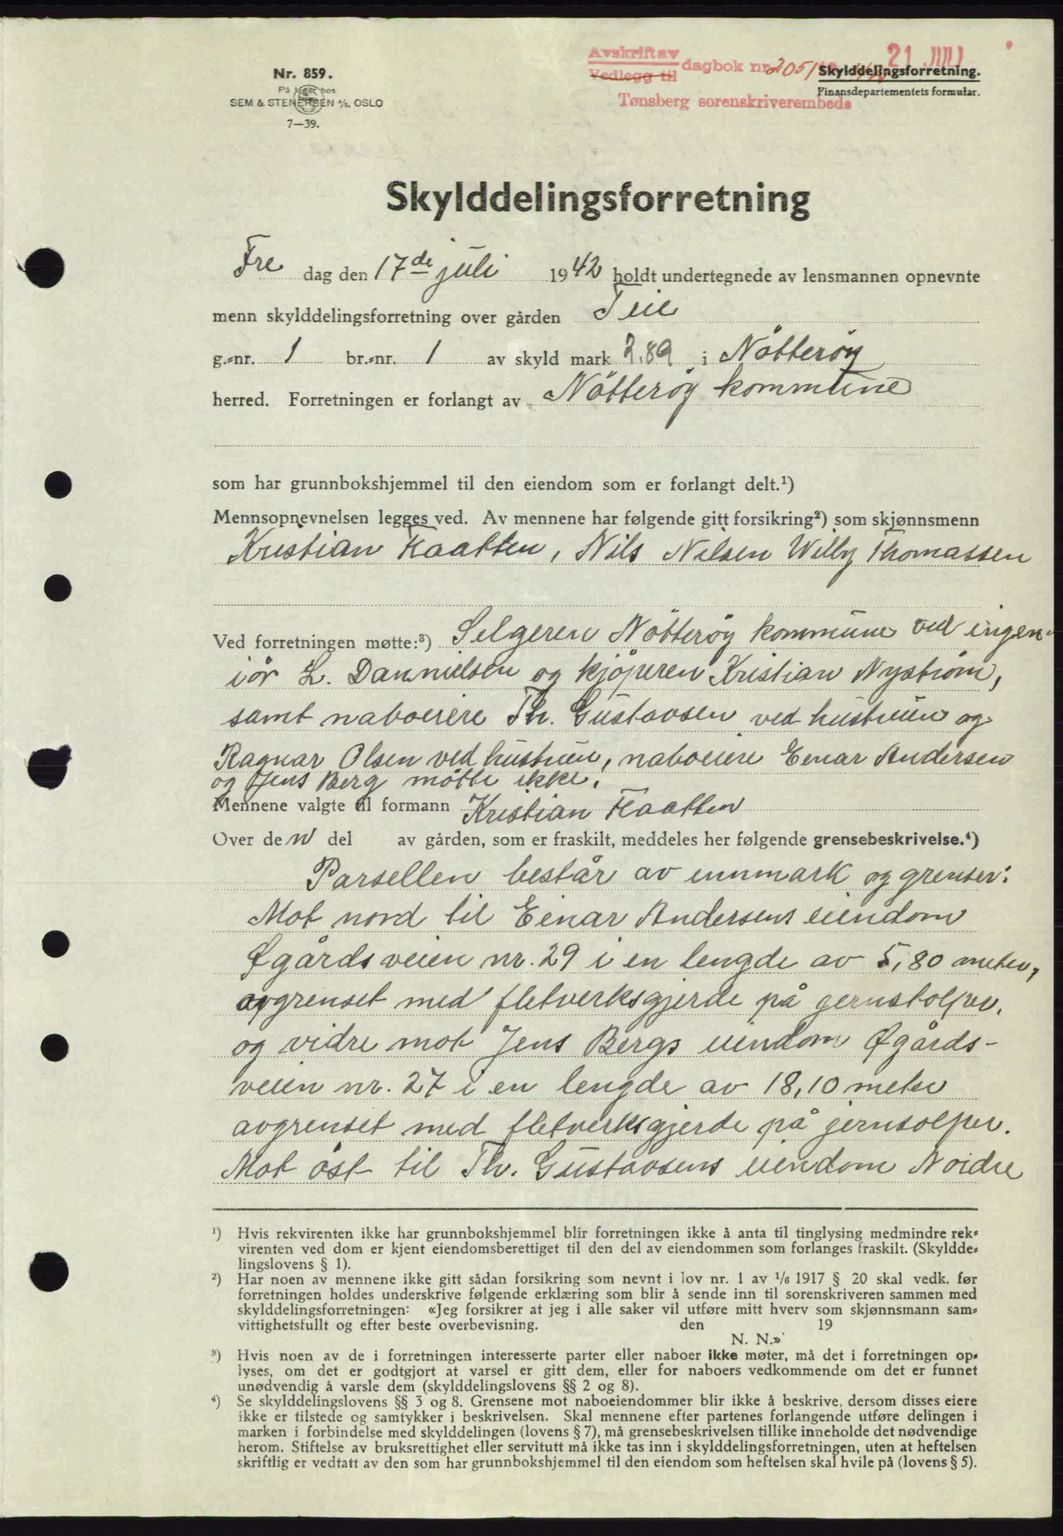 Avskrift av
Vedlegg til
dagbok nr. 2051
21 JULI
Tønsberg sorenskriverembede
Nr. 859.
På lager hos
SEM & STENERSEN A/S, OSLO
7—39.
Skylddelingsforretning.
Finansdepartementets formular.
Skylddelingsforretning
Fre dag den 17de juli 1942 holdt undertegnede av lensmannen opnevnte
menn skylddelingsforretning over gården Teie
g.-nr. 1 br.-nr. 1 av skyld mark 2,89 i Nötterøy
herred. Forretningen er forlangt av Nötterøy kommune
som har grunnbokshjemmel til den eiendom som er forlangt delt.¹)
Mennsopnevnelsen legges ved. Av mennene har følgende gitt forsikring²) som skjønnsmenn
Kristian Kaatten, Nils Nilsen Willy Thomassen
Ved forretningen møtte:³) Selgeren Nötterøy kommune ved ingen-
iör L. Dannielsen og kjøperen Kristian Nystrøm,
samt naboeiere Th. Gustavsen ved hustruen og
Ragnar Olsen ved hustruen, naboeiere Einar Andersen
og Jens Berg mötte ikke.
Mennene valgte til formann Kristian Kaatten
Over den del av gården, som er fraskilt, meddeles her følgende grensebeskrivelse.⁴)
Parsellen består av innmark og grenser:
Mot nord til Einar Andersens eiendom
Øgårdsveien nr. 29 i en lengde av 5,80 meter,
avgrenset med fletverksgjerde på jernstolper,
og vidre mot Jens Bergs eiendom Øgårds-
veien nr. 27 i en lengde av 18,10 meter
avgrenset med fletverksgjerde på jernsolper.
Mot öst til Th. Gustavsens eiendom Nordre
¹) Hvis rekvirenten ikke har grunnbokshjemmel blir forretningen ikke å anta til tinglysing medmindre rek-
virenten ved dom er kjent eiendomsberettiget til den del av eiendommen som forlanges fraskilt. (Skyldde-
lingslovens § 1).
²) Har noen av mennene ikke gitt sådan forsikring som nevnt i lov nr. 1 av 1/6 1917 § 20 skal vedk. før
forretningen holdes underskrive følgende erklæring som blir å sende inn til sorenskriveren sammen med
skylddelingsforretningen: «Jeg forsikrer at jeg i alle saker vil utføre mitt hverv som skjønnsmann sam-
vittighetsfullt og efter beste overbevisning. den 19
N. N.»
³) Hvis noen av de i forretningen interesserte parter eller naboer ikke møter, må det i forretningen op-
lyses, om det er godtgjort at varsel er gitt dem, eller for naboers vedkommende om det er funnet
unødvendig å varsle dem (skylddelingslovens §§ 2 og 8).
⁴) Se skylddelingslovens §§ 3 og 8. Grensene mot naboeiendommer blir ikke å beskrive, dersom disses eiere
ikke er tilstede og samtykker i beskrivelsen. Skal mennene efter partenes forlangende utføre delingen i
marken i forbindelse med skylddelingen (lovens § 7), må grensebeskrivelsen tillike inneholde det nødvendige
herom. Stiftelse av bruksrettighet eller servitutt må ikke tas inn i skylddelingsforretningen, uten at heftelsen
skriftlig er vedtatt av den som har grunnbokshjemmel til den eiendom som heftelsen skal hvile på (lovens § 5).